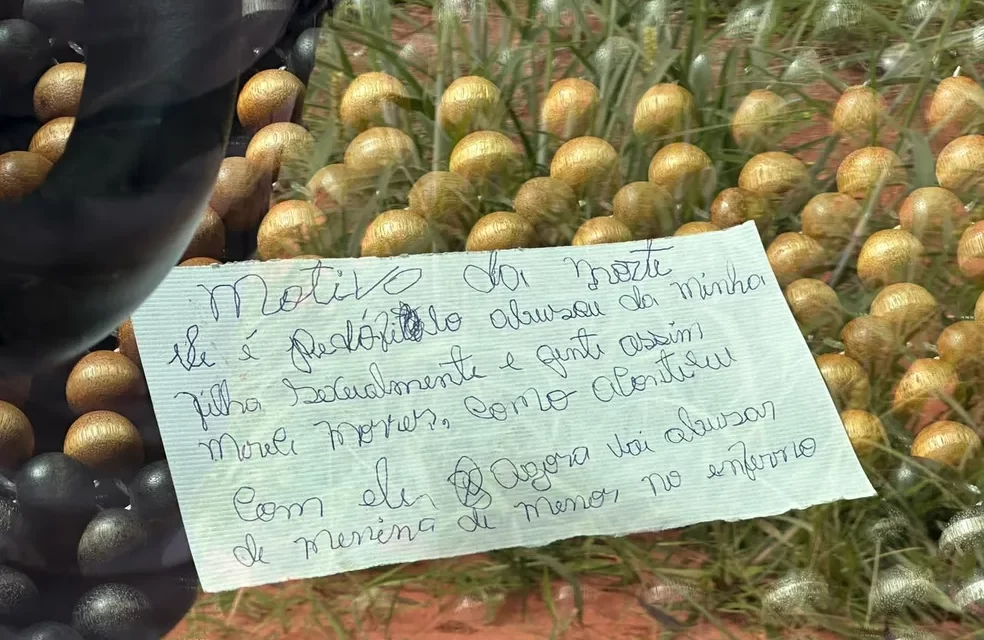 Motivo da morte
ele é pedófilo abusou da minha
filha sexualmente e gente assim
mereci morrer, como aconticeu
com ele, agora vai abusar
de menina de menor no enferno